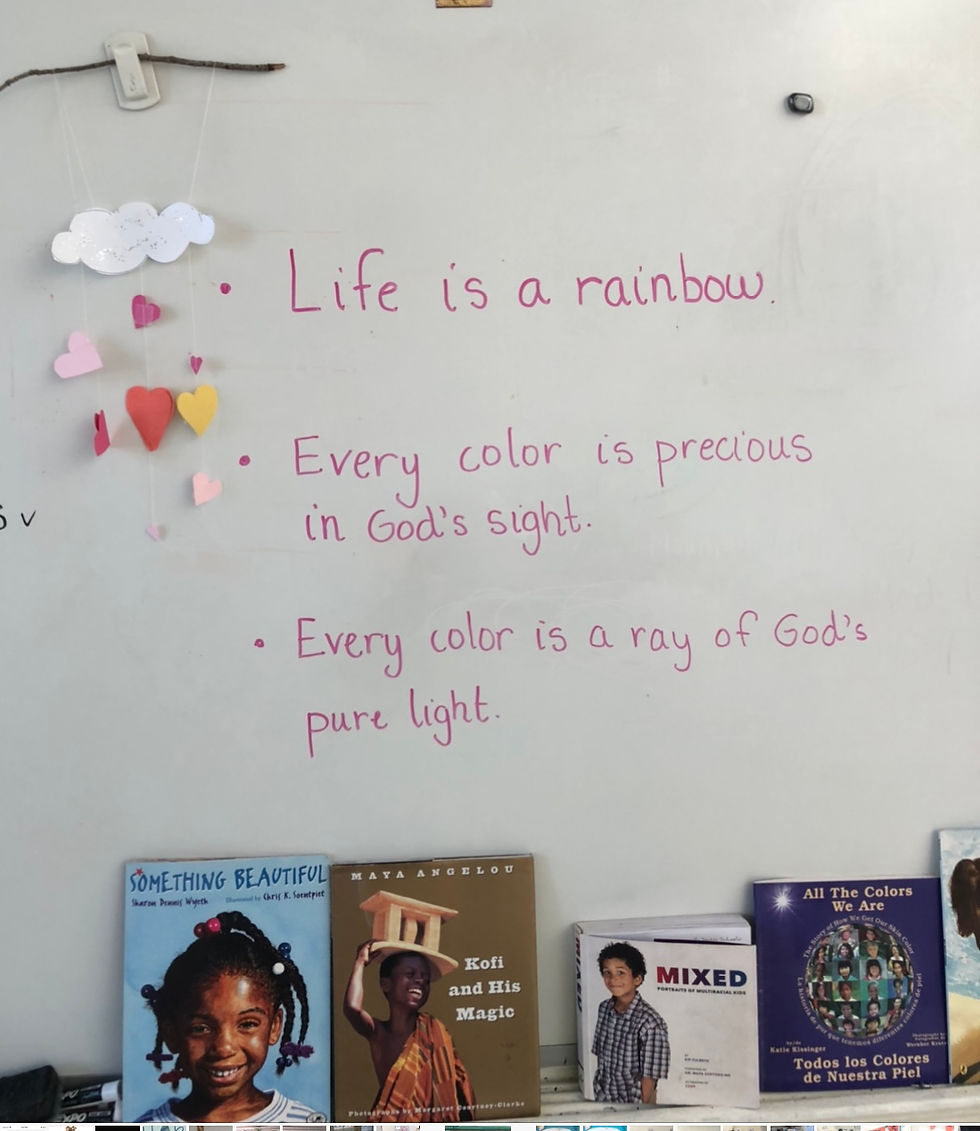 • Life is a rainbow.
• Every color is precious
in God's sight.
• Every color is a ray of God's
pure light.
SOMETHING BEAUTIFUL
Sharon Dennis Wyeth
Illustrated by Chris K. Soentpiet
MAYA ANGELOU
Kofi
and His
Magic
Photographs by Margaret Courtney-Clarke
MIXED
PORTRAITS OF MULTIRACIAL KIDS
All The Colors
We Are
The Story of How We Got Our Skin Color
La historia de por qué tenemos diferentes colores de piel
by/de
Katie Kissinger
Todos los Colores
de Nuestra Piel
EXPO